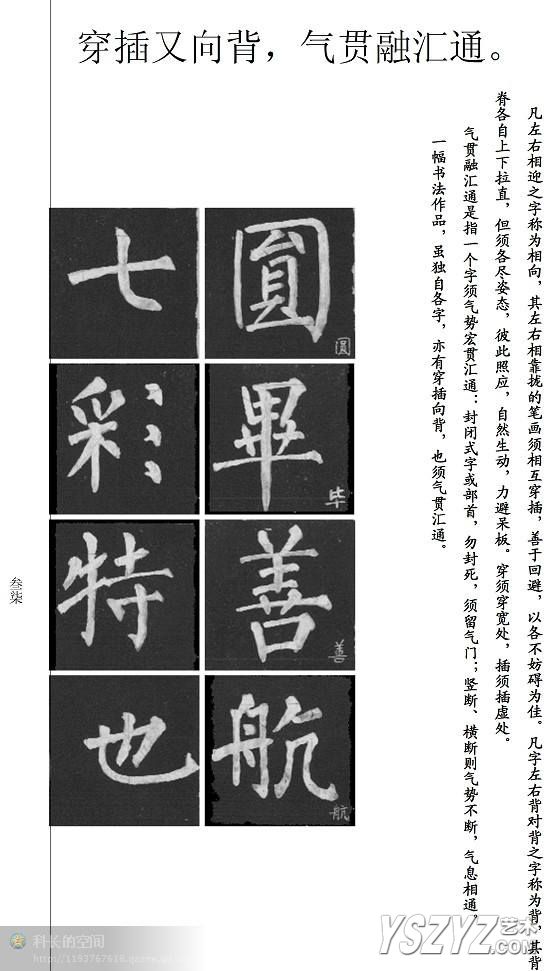 穿插又向背，气贯融汇通。
凡左右相迎之字称为相向，其左右相靠拢的笔画须相互穿插，善于回避，以各不妨碍为佳。凡字左右背对背之字称为背，其背
脊各自上下拉直，但须各尽姿态，彼此照应，自然生动，力避呆板。穿须穿宽处，插须插虚处。
气贯融汇通是指一个字须气势宏贯汇通：封闭式字或部首，勿封死，须留气门；竖断、横断则气势不断，气息相通。
一幅书法作品，虽独自各字，亦有穿插向背，也须气贯汇通。
圓
圆
畢
毕
善
善
航
航
七
彩
特
也
叁柒
科长的空间
YSZYZ艺术